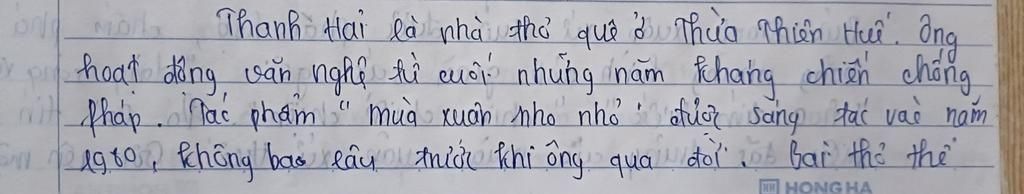 Thanh Hải là nhà thơ quê ở Thừa Thiên Huế. Ông
hoạt động văn nghệ từ cuối những năm kháng chiến chống
Pháp. Tác phẩm "mùa xuân nho nhỏ" được sáng tác vào năm
1980, không bao lâu trước khi ông qua đời. Bài thơ thể
HONG HA